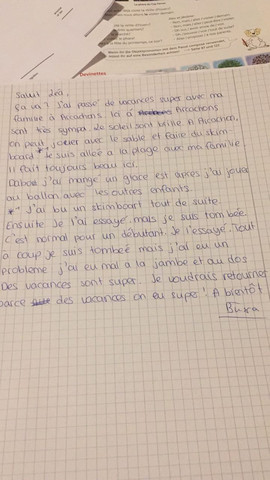 Salut Léa,
Ça va? J'ai passé de vacances super avec ma
famille à Arcachons. Ici à Arcachons
sont très sympa. Le soleil sont brille. À Arcachon,
on peut jouer avec le sable et faire du skim-
board. Je suis alleé a la plage avec ma famille
Il fait toujours beau ici.
j'ai mangé un glace est après j'ai joué
au ballon avec les outres enfants.
J'ai bu un skimboart tout de suite.
Ensuite Je l'ai essayé, mais je suis tombée.
C'est normal pour un débutant. Je l'essayé. Tout
à coup je suis tombeé mais j'ai eu un
problème j'ai eu mal a la jambe et au dos
Des vacances sont super. Je voudrais retourner
parce des vacances on eu super! A bientôt